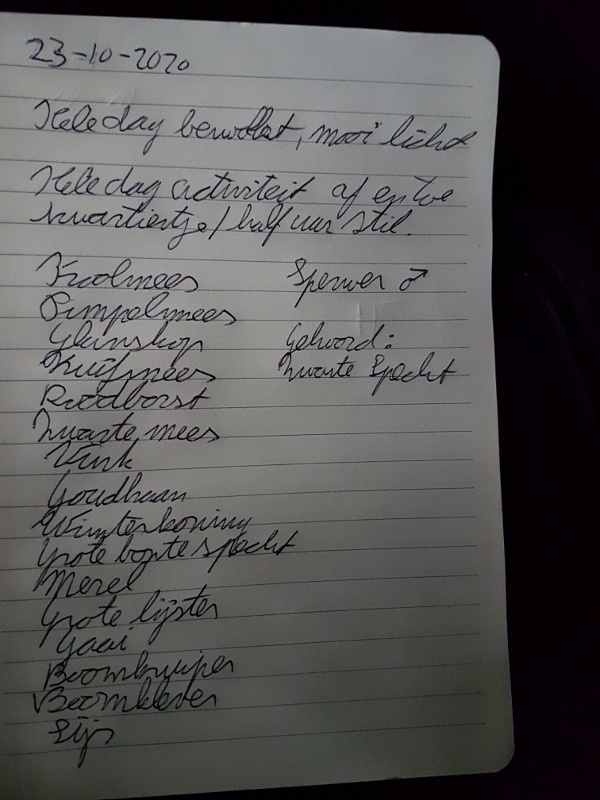 23-10-2020
Hele dag bewolkt, mooi licht
Hele dag activiteit af en toe
kwartiertje/half uur stil.
Koolmees
Pimpelmees
Glanskop
Kuifmees
Roodborst
Zwarte mees
Vink
Goudhaan
Winterkoning
Grote bonte specht
Merel
Grote lijster
Gaai
Boomkruiper
Boomklever
Sijs
Sperwer ♂
Gehoord:
Zwarte Specht